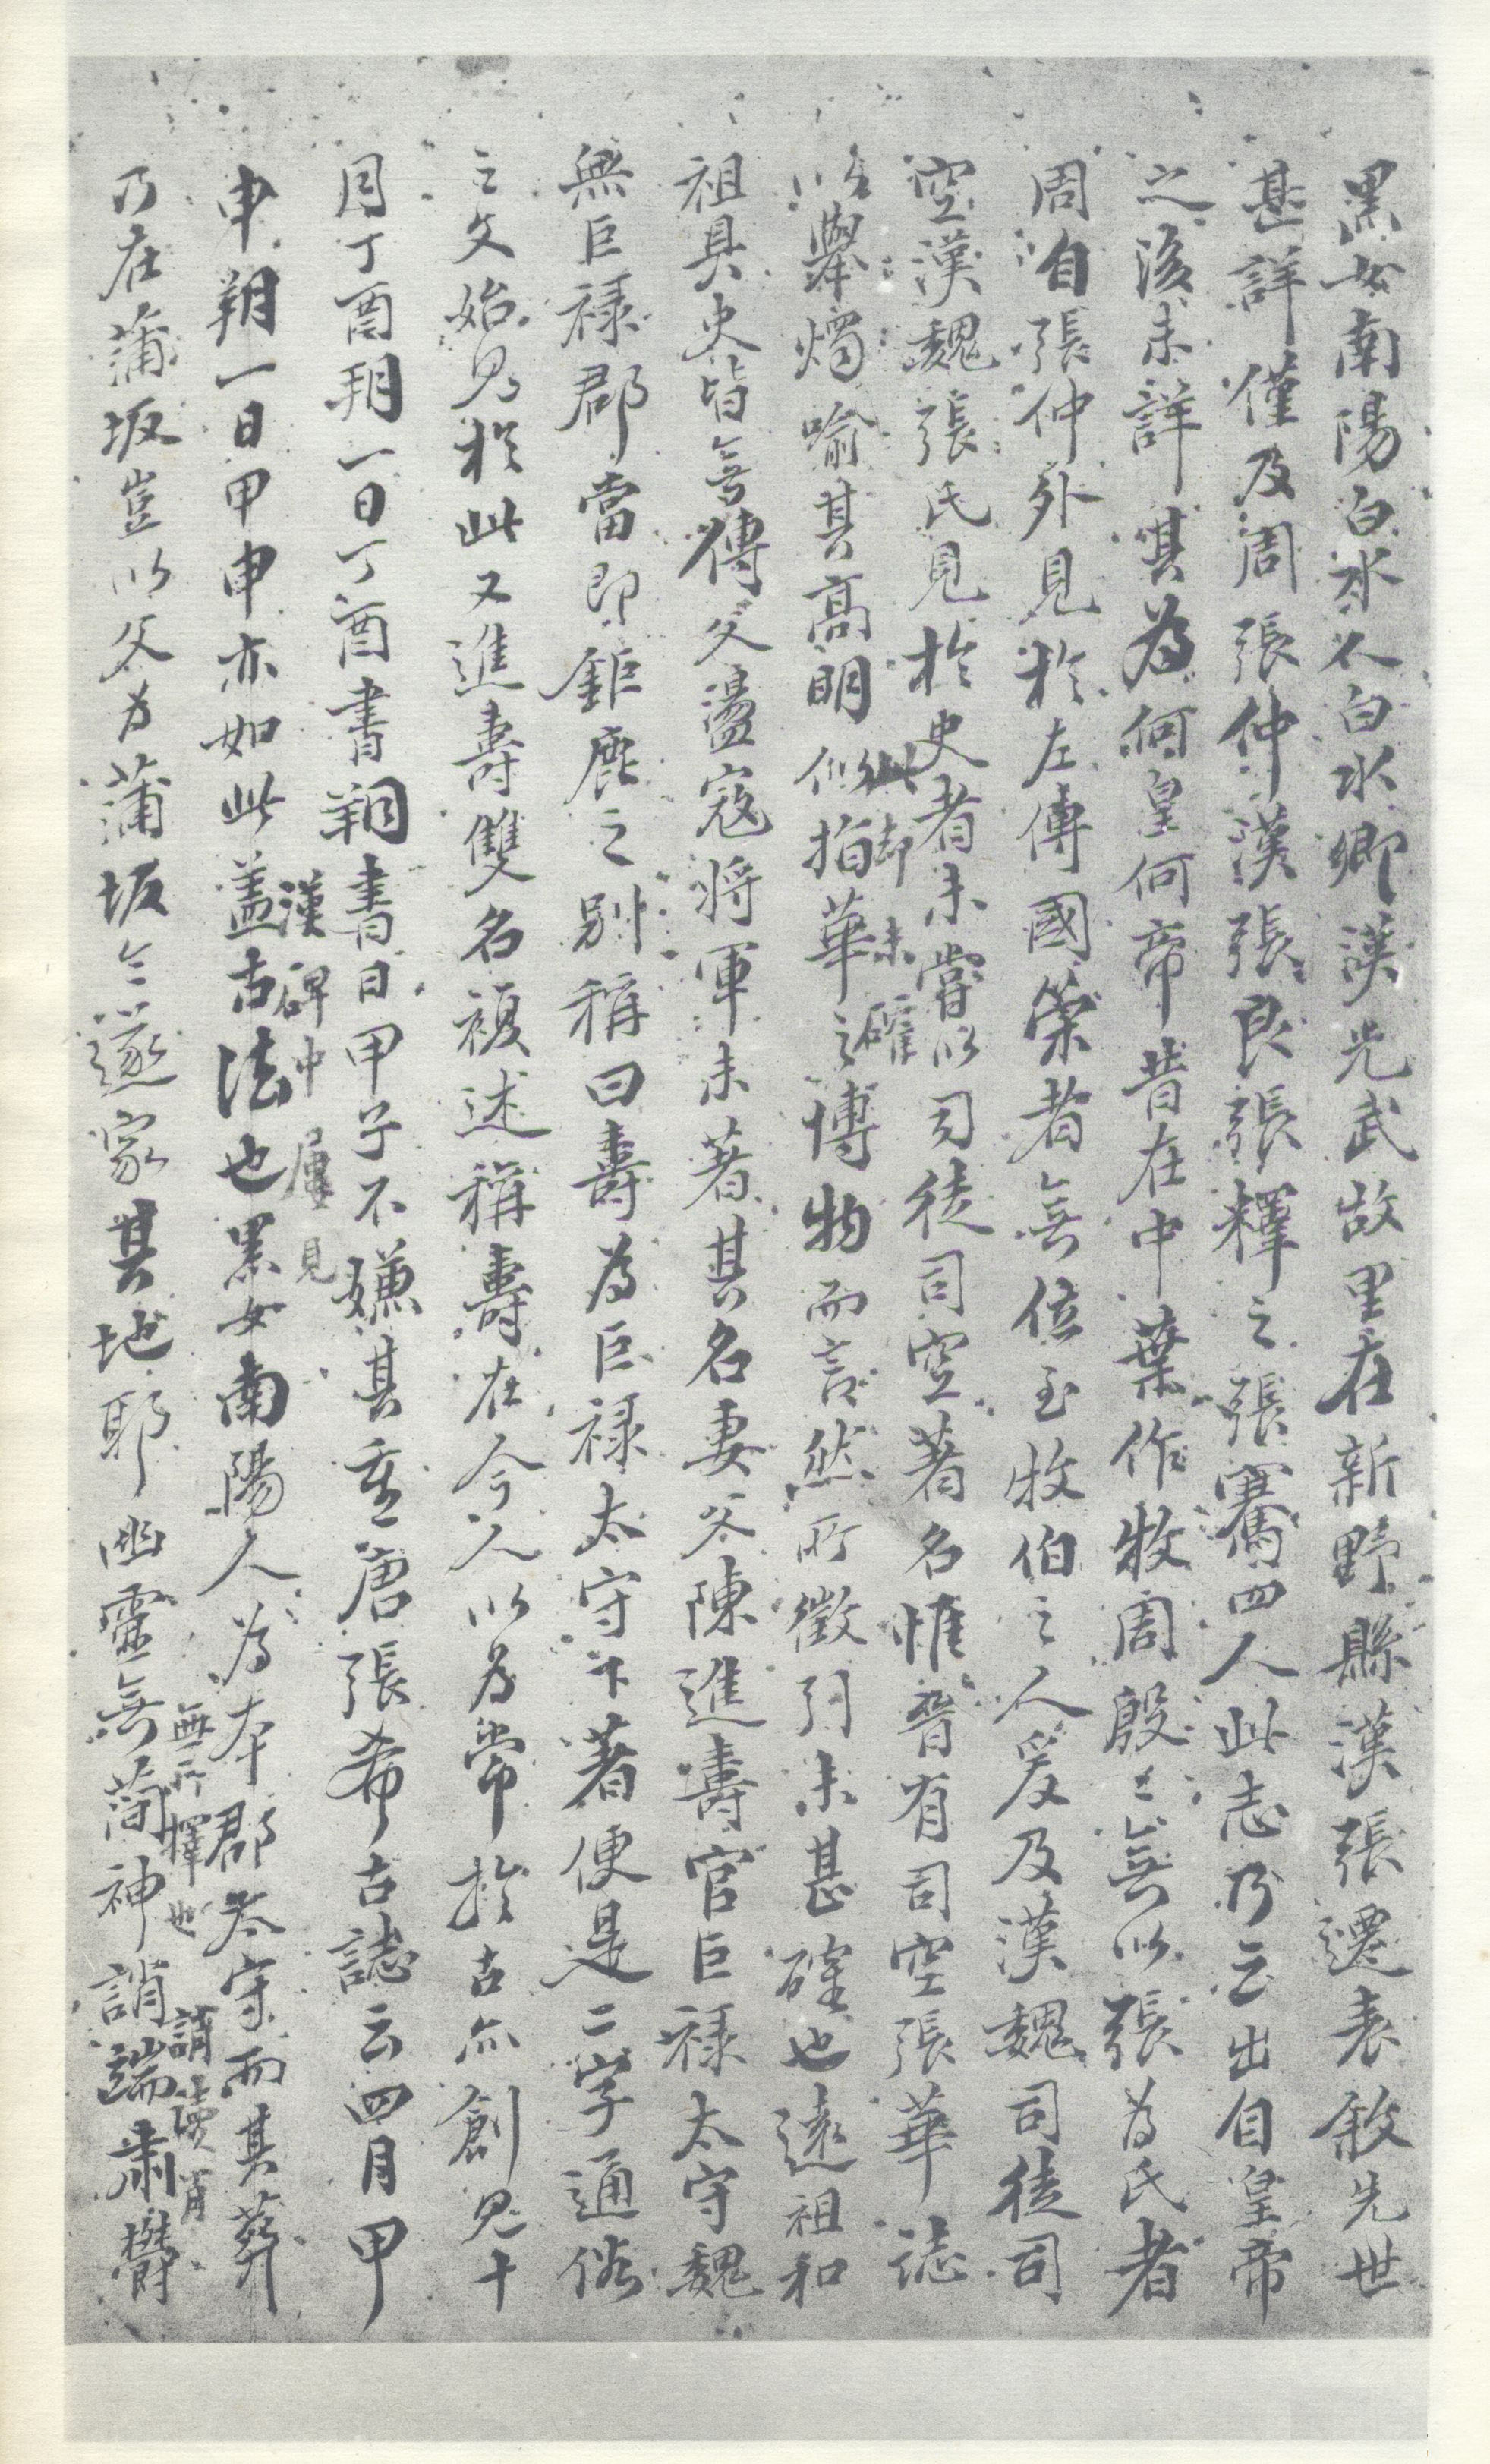 黑女南陽白水人白水鄉漢光武故里在新野縣漢張遷表敘先世
甚詳僅及周張仲漢張良張釋之張騫四人此志乃云出自皇帝
之後未詳其為何皇何帝昔在中葉作牧周殷殷無以張為氏者
周自張仲外見於左傳國策者無位至牧伯之人爰及漢魏司徒司
空漢魏張氏見於史者未嘗以司徒司空著名惟晉有司空張華誌
以舉燭喻其高明似指華之博物而言然所徵引未甚確也遠祖和
此却未確
祖具史皆無傳父盪寇將軍未著其名妻父陳進壽官巨祿太守魏
無巨祿郡當即鉅鹿之別稱曰壽為巨祿太守下著便是二字通俗
之文始見於此又進壽雙名複述稱壽在今人以為常於古亦創見十
月丁酉朔一日丁酉書朔書日甲子不嫌其重唐張希古誌云四月甲
漢碑中屢見
申朔一日甲申亦如此蓋古法也黑女南陽人為本郡太守而其葬
乃在蒲坂豈以父為蒲坂令遂家其地耶幽靈無簡神誚端肅鬱
無所擇也
誚讀肖